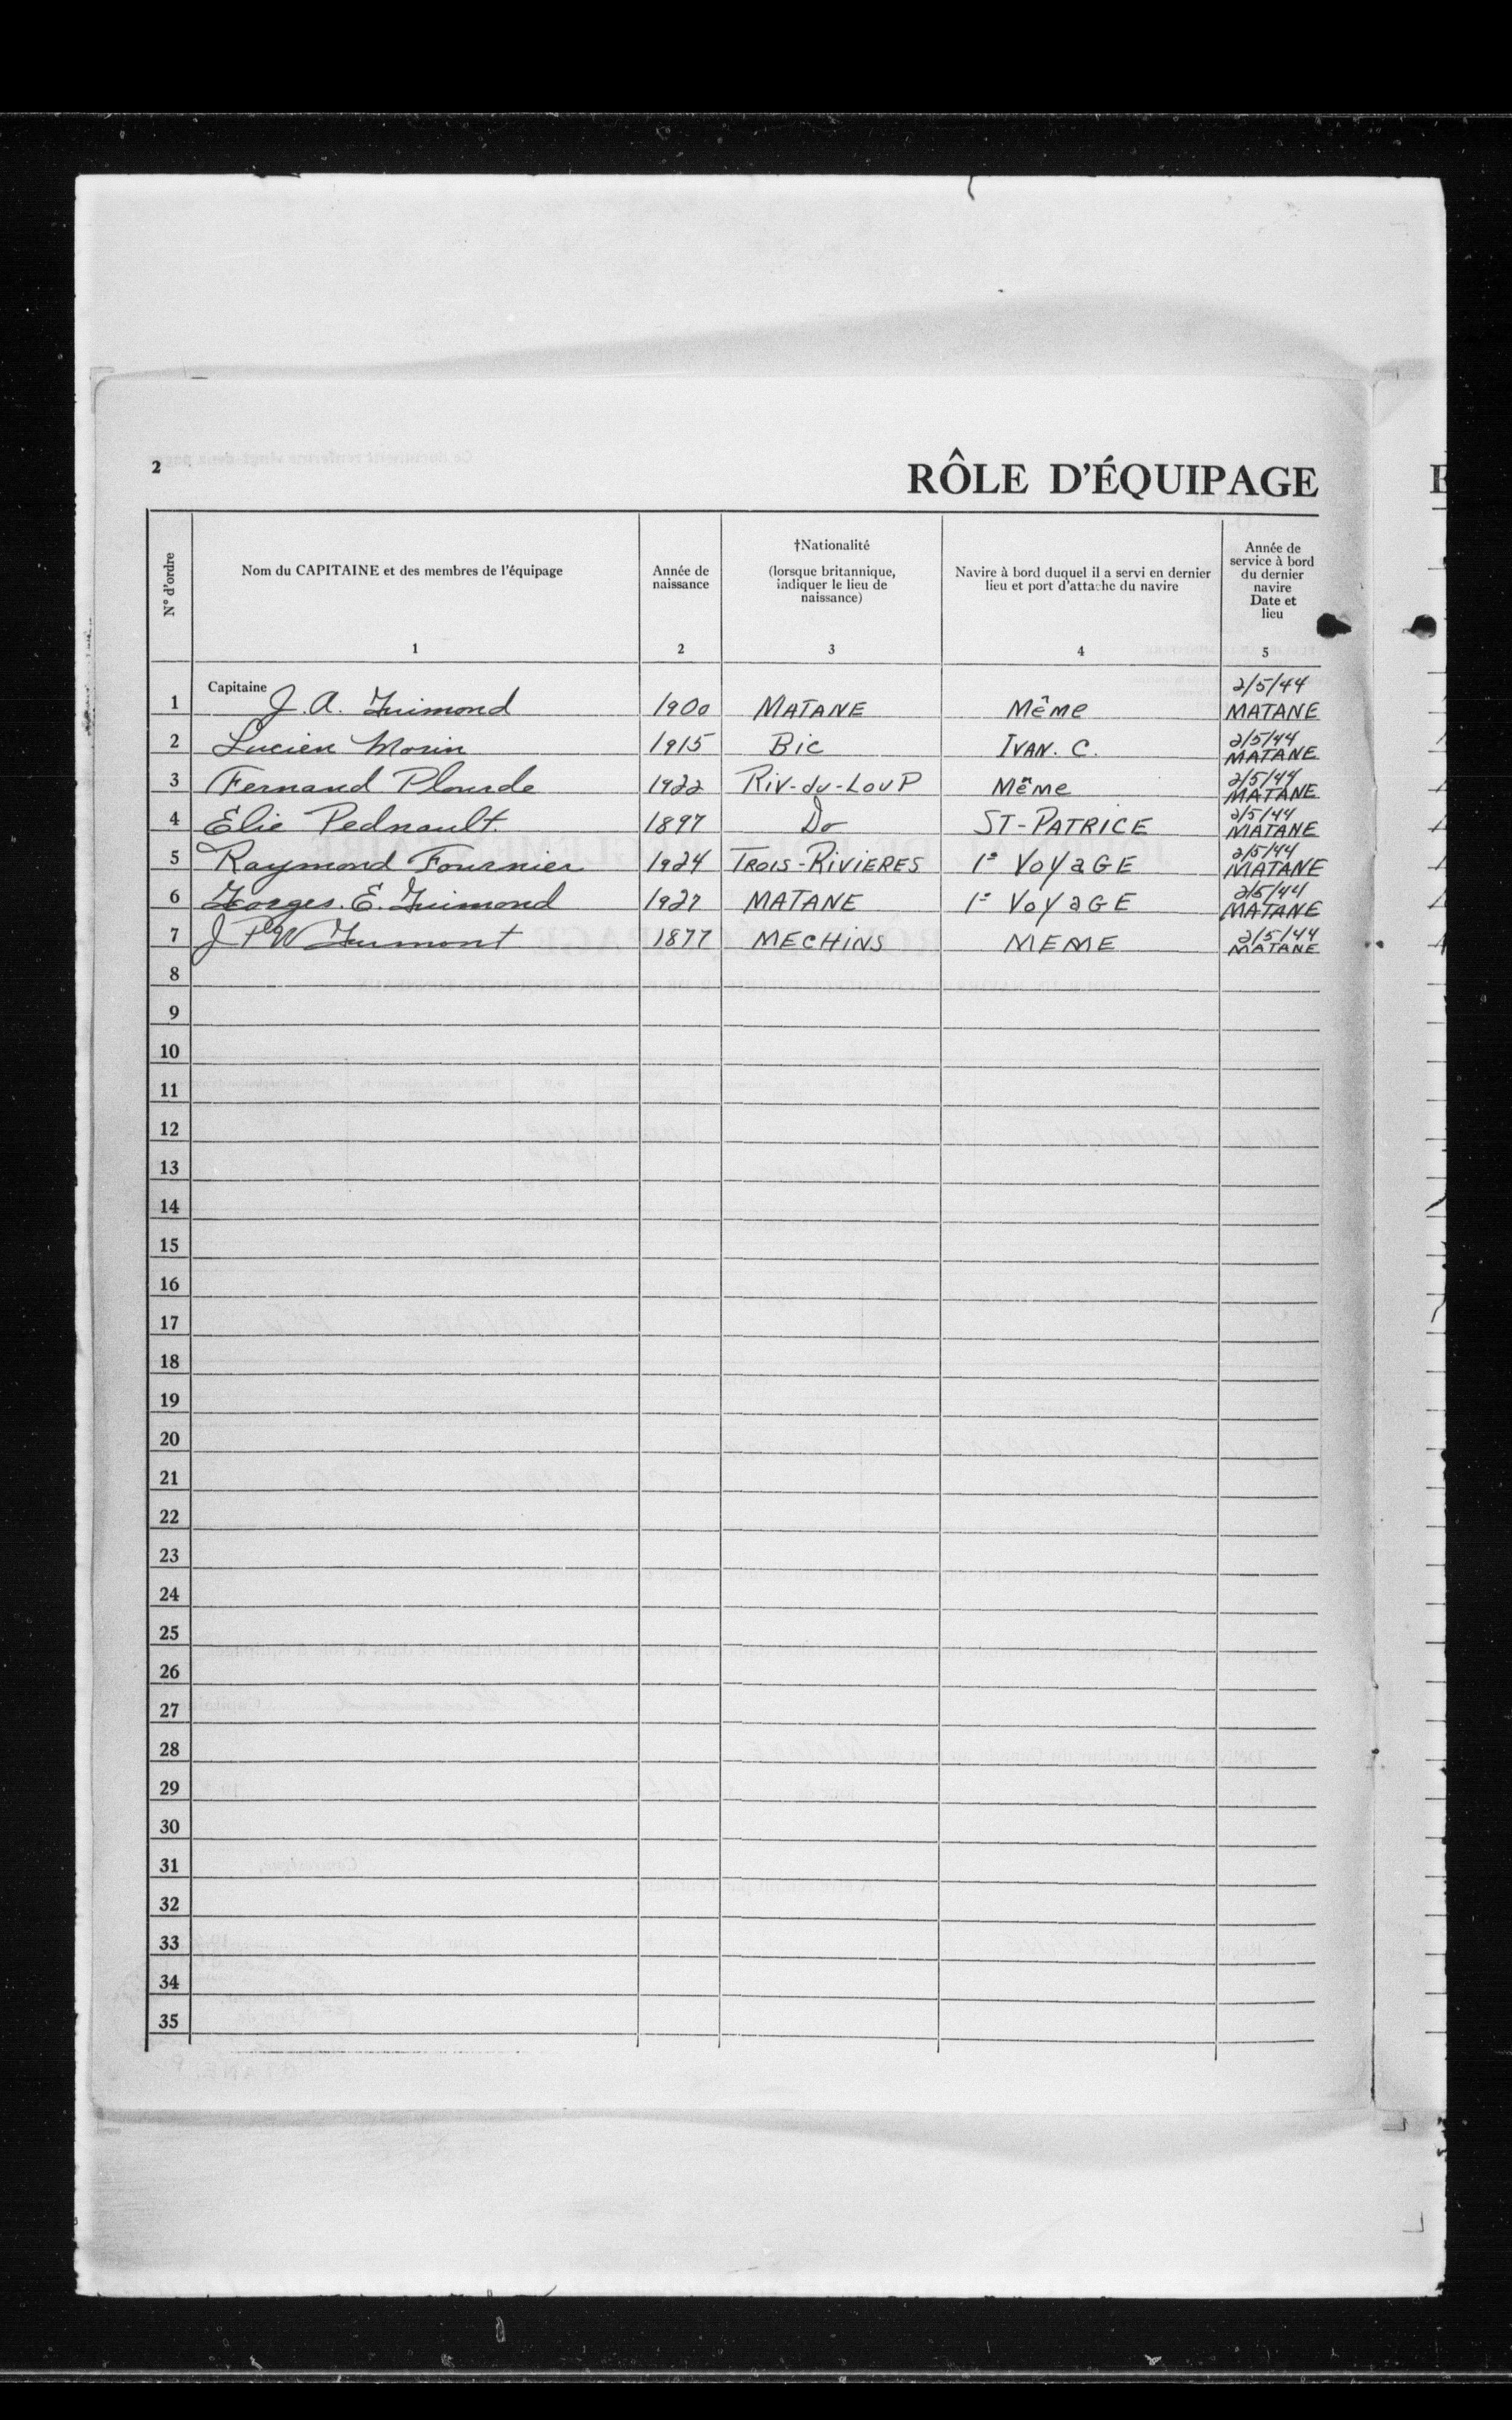 2
RÔLE D'ÉQUIPAGE
N° d'ordre
Nom du CAPITAINE et des membres de l'équipage
1
Année de
naissance
2
†Nationalité
(lorsque britannique,
indiquer le lieu de
naissance)
3
Navire à bord duquel il a servi en dernier
lieu et port d'attache du navire
4
Année de
service à bord
du dernier
navire
Date et
lieu
5
1 Capitaine J. A. Guimond 1900 MATANE Même 2/5/44 MATANE
2 Lucien Morin 1915 Bic IVAN. C. 2/5/44 MATANE
3 Fernand Plourde 1922 Riv-du-LouP Même 2/5/44 MATANE
4 Elie Pednault. 1897 Do ST-PATRICE 2/5/44 MATANE
5 Raymond Fournier 1924 TROIS-RIVIERES 1e VoyaGE 2/5/44 MATANE
6 Georges. E. Guimond 1927 MATANE 1e VoyaGE 2/5/44 MATANE
7 J 1877 MECHINS MEME 2/5/44 MATANE
8
9
10
11
12
13
14
15
16
17
18
19
20
21
22
23
24
25
26
27
28
29
30
31
32
33
34
35